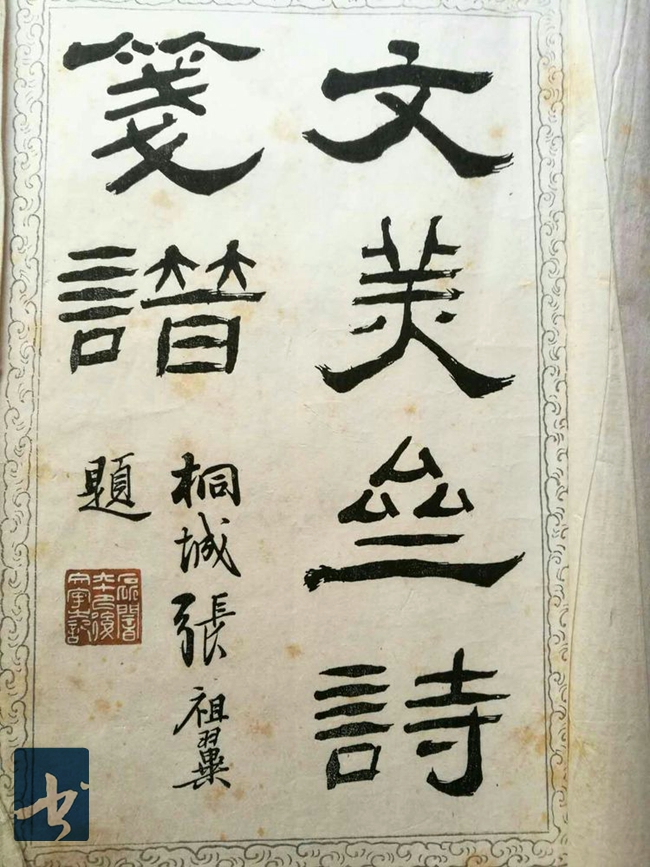 文美亝詩
箋譜
桐城張祖翼
題
书